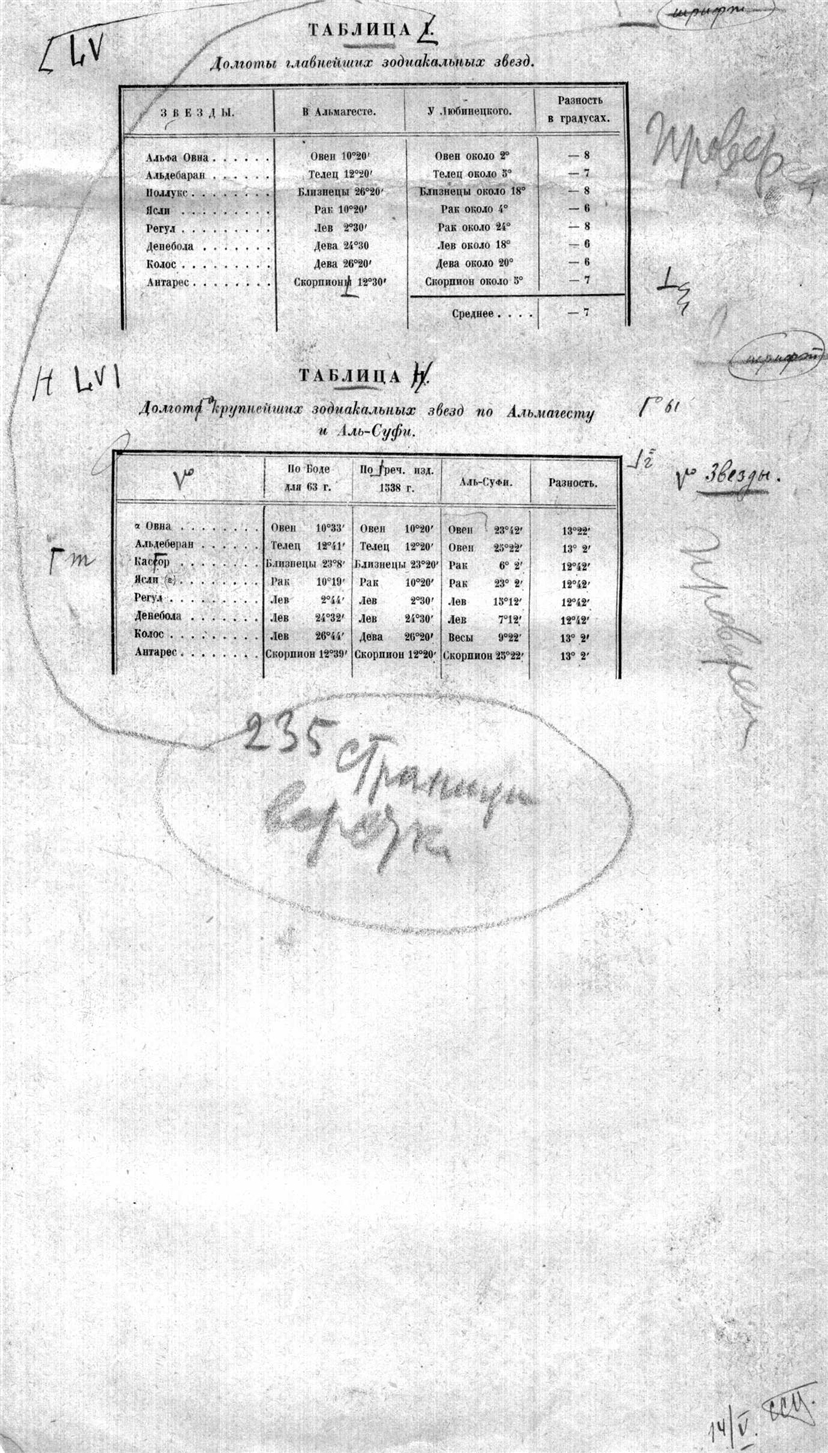 шрифт
LV
ТАБЛИЦА I.
Долготы главнейших зодиакальных звезд.
ЗВЕЗДЫ. В Альмагесте. У Любинецкого. Разность в градусах.
Альфа Овна . . . . . . Овен 10°20′ Овен около 2° — 8
Альдебаран . . . . . . Телец 12°20′ Телец около 5° — 7
Поллукс . . . . . . . . Близнецы 26°20′ Близнецы около 18° — 8
Ясли . . . . . . . . . Рак 10°20′ Рак около 4° — 6
Регул . . . . . . . . . Лев 2°30′ Рак около 24° — 8
Денебола . . . . . . . Дева 24°30 Лев около 18° — 6
Колос . . . . . . . . . Дева 26°20′ Дева около 20° — 6
Антарес . . . . . . . . Скорпионы 12°30′ Скорпион около 5° — 7
Среднее . . . . — 7
Провер
шрифт
LVI
ТАБЛИЦА II.
Долгота крупнейших зодиакальных звезд по Альмагесту
и Аль-Суфи.
ы
По Боде для 63 г. По греч. изд. 1538 г. Аль-Суфи. Разность.
Звезды.
α Овна . . . . . . . . Овен 10°33′ Овен 10°20′ Овен 23°42′ 13°22′
Альдеберан . . . . . . Телец 12°41′ Телец 12°20′ Овен 25°22′ 13° 2′
т
Кассор . . . . . . . . Близнецы 23°8′ Близнецы 23°20′ Рак 6° 2′ 12°42′
Ясли (ε) . . . . . . . Рак 10°19′ Рак 10°20′ Рак 23° 2′ 12°42′
Регул . . . . . . . . . Лев 2°44′ Лев 2°30′ Лев 15°12′ 12°42′
Денебола . . . . . . . Лев 24°32′ Лев 24°30′ Лев 7°12′ 12°42′
Колос . . . . . . . . . Лев 26°44′ Дева 26°20′ Весы 9°22′ 13° 2′
Антарес . . . . . . . . Скорпион 12°39′ Скорпион 12°20′ Скорпион 25°22′ 13° 2′
235 страницы
верстк
14/V